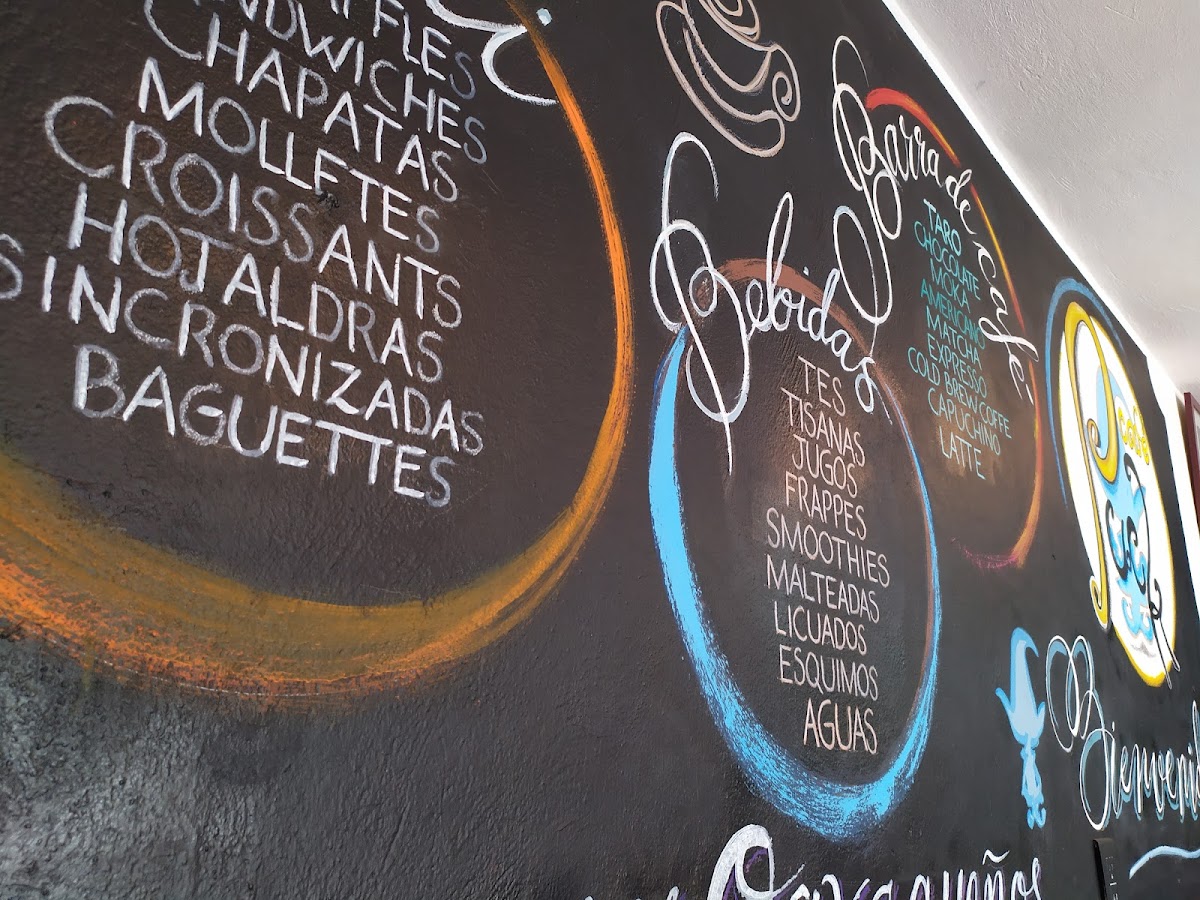 SANDWICHES
CHAPATAS
MOLLETES
CROISSANTS
HOJALDRAS
SINCRONIZADAS
BAGUETTES
Bebidas
TES
TISANAS
JUGOS
FRAPPES
SMOOTHIES
MALTEADAS
LICUADOS
ESQUIMOS
AGUAS
Barra de café
TARO
CHOCOLATE
MOKA
AMERICANO
MATCHA
EXPRESSO
COLD BREW COFFE
CAPUCHINO
LATTE
Oaxaqueños